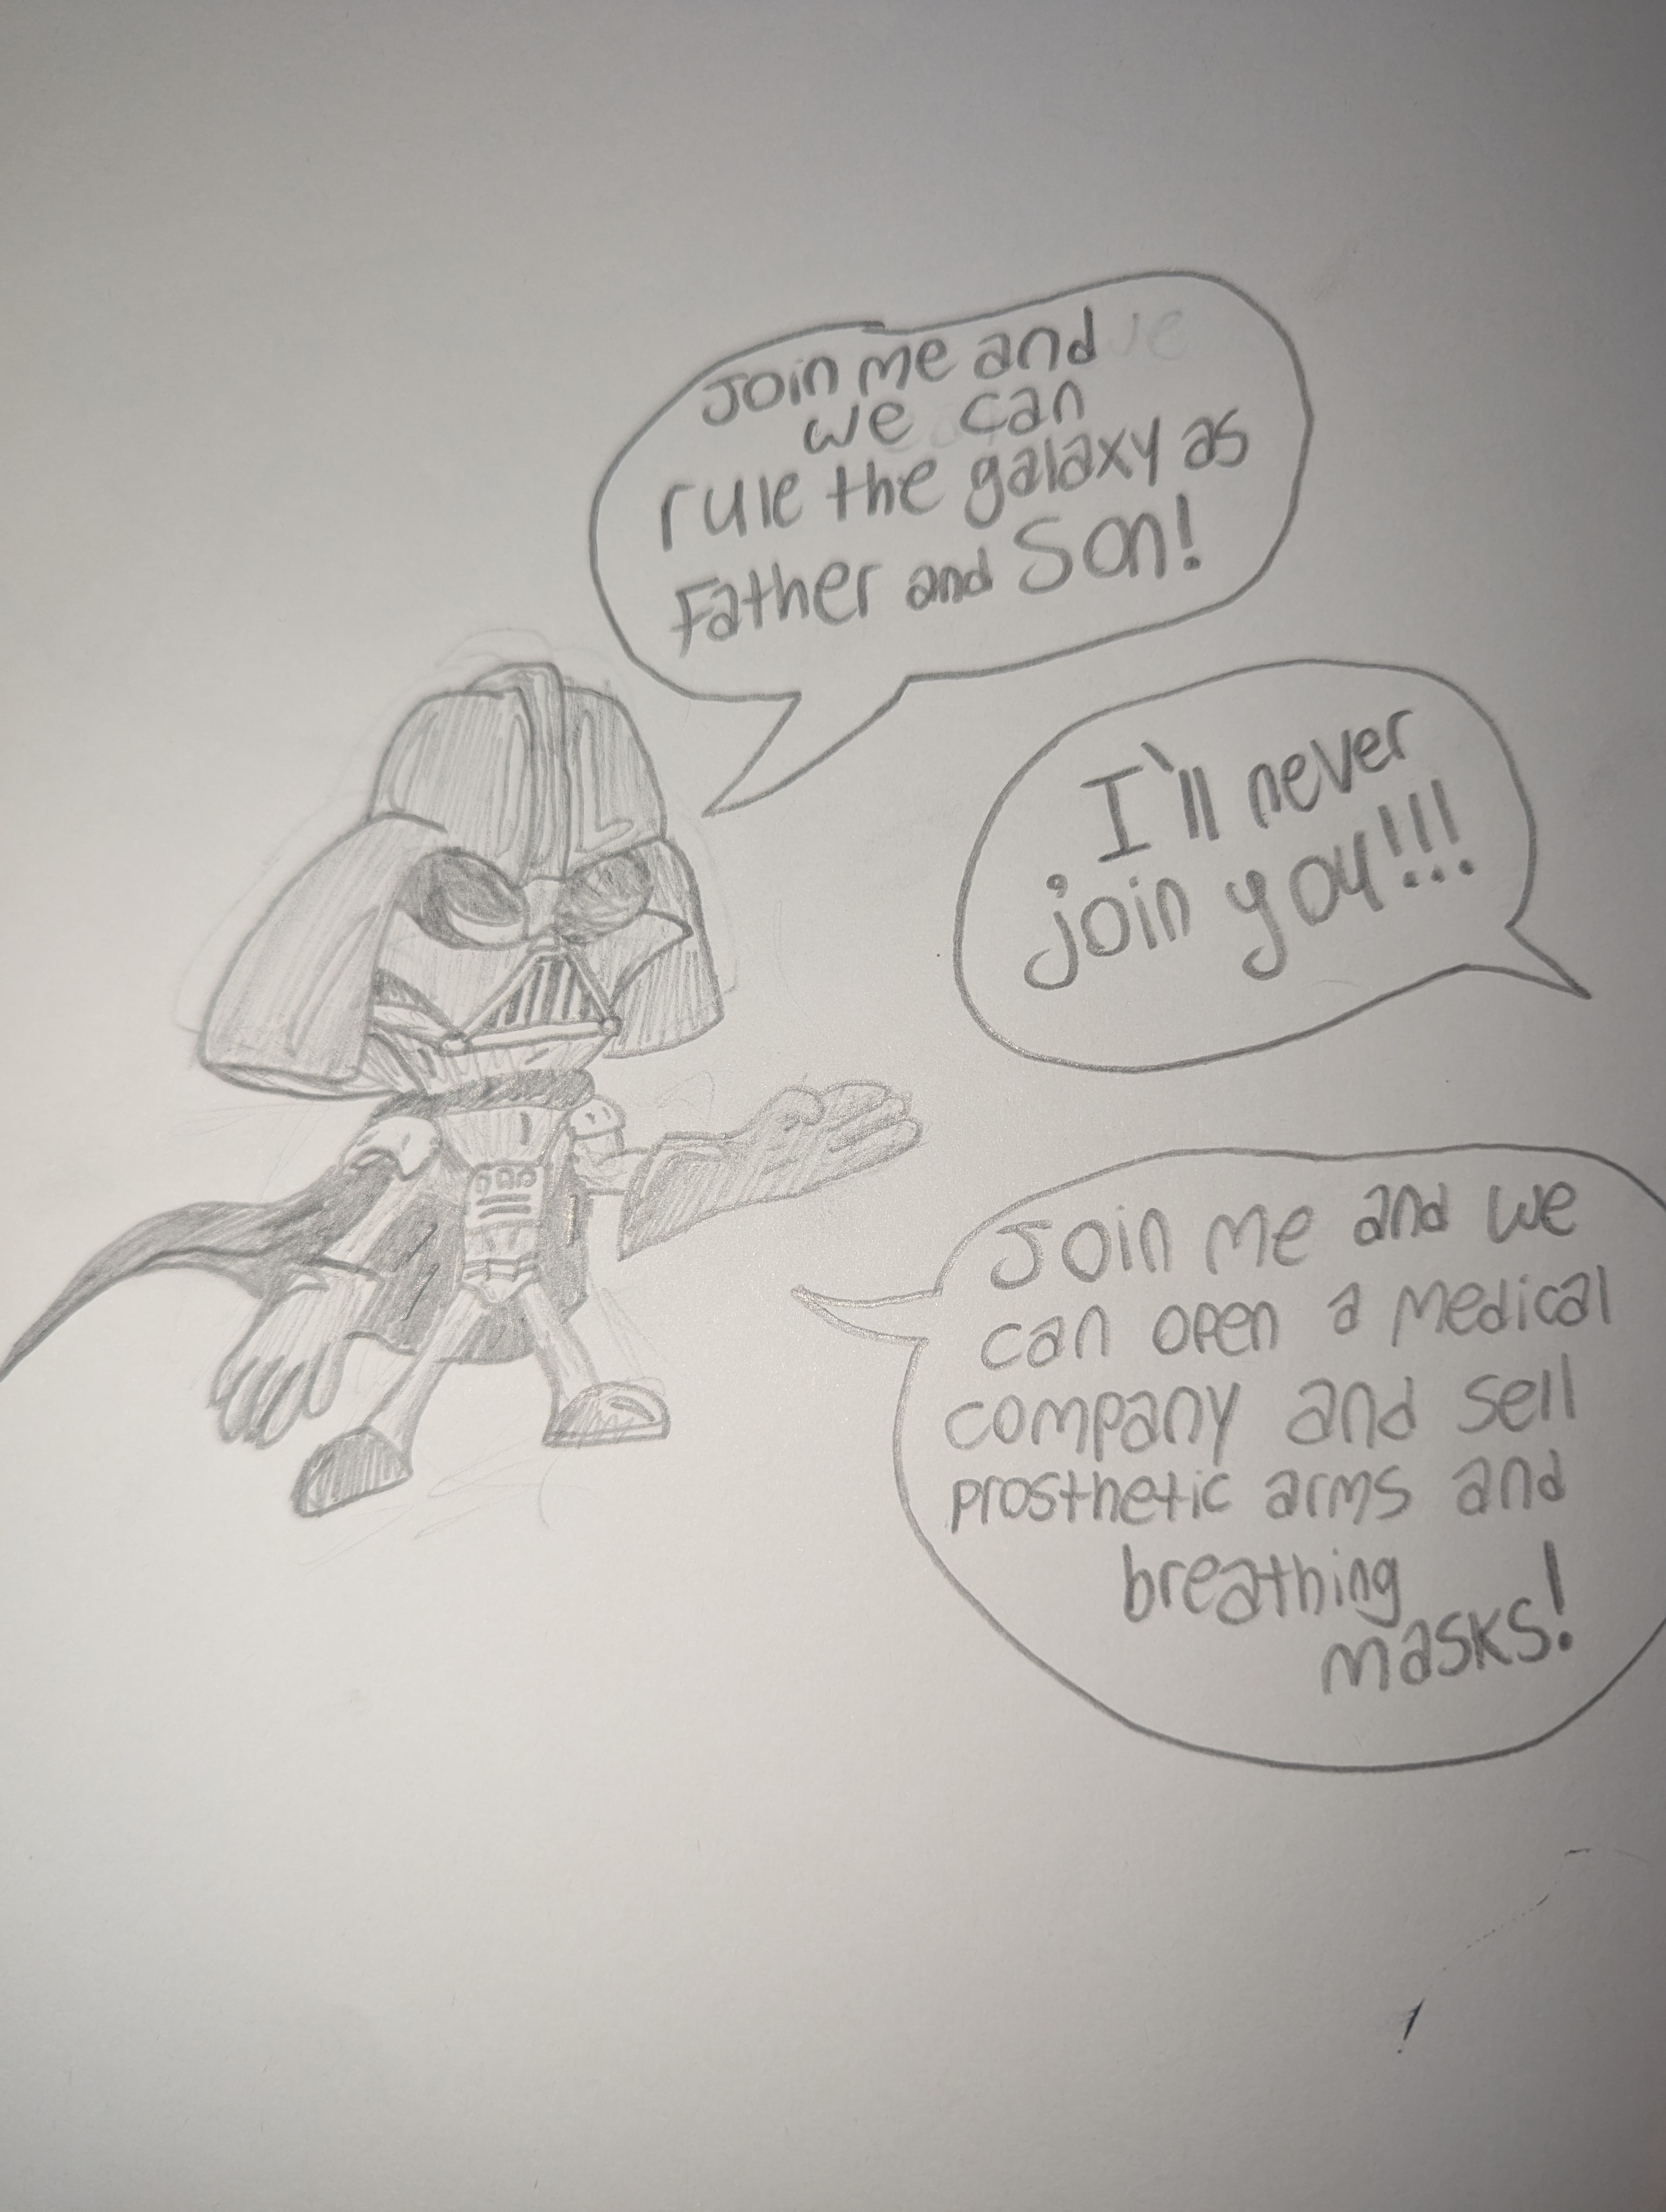 Join me and
we can
rule the galaxy as
Father and Son!
I'll never
join you!!!
Join me and we
can open a medical
company and sell
prosthetic arms and
breathing
masks!